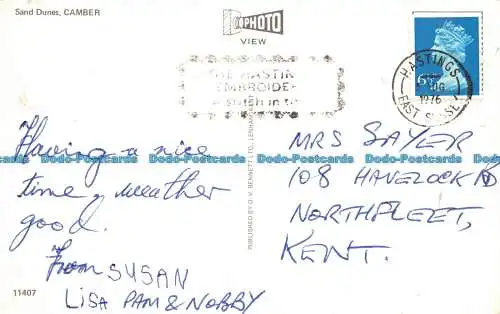 Sand Dunes, CAMBER
PHOTO
VIEW
THE HASTINGS
EMBROIDERY
HASTINGS
1976
EAST SUSSEX
6½P
Having a nice
time, weather
good.
From SUSAN
LISA PAM & NOBBY
11407
PUBLISHED BY D. V. BENNETT LTD.,
MRS SAYER
108 HAVELOCK RD
NORTHFLEET,
KENT.
Dodo-Postcards Dodo-Postcards Dodo-Postcards Dodo-Postcards
Dodo-Postcards Dodo-Postcards Dodo-Postcards Dodo-Postcards